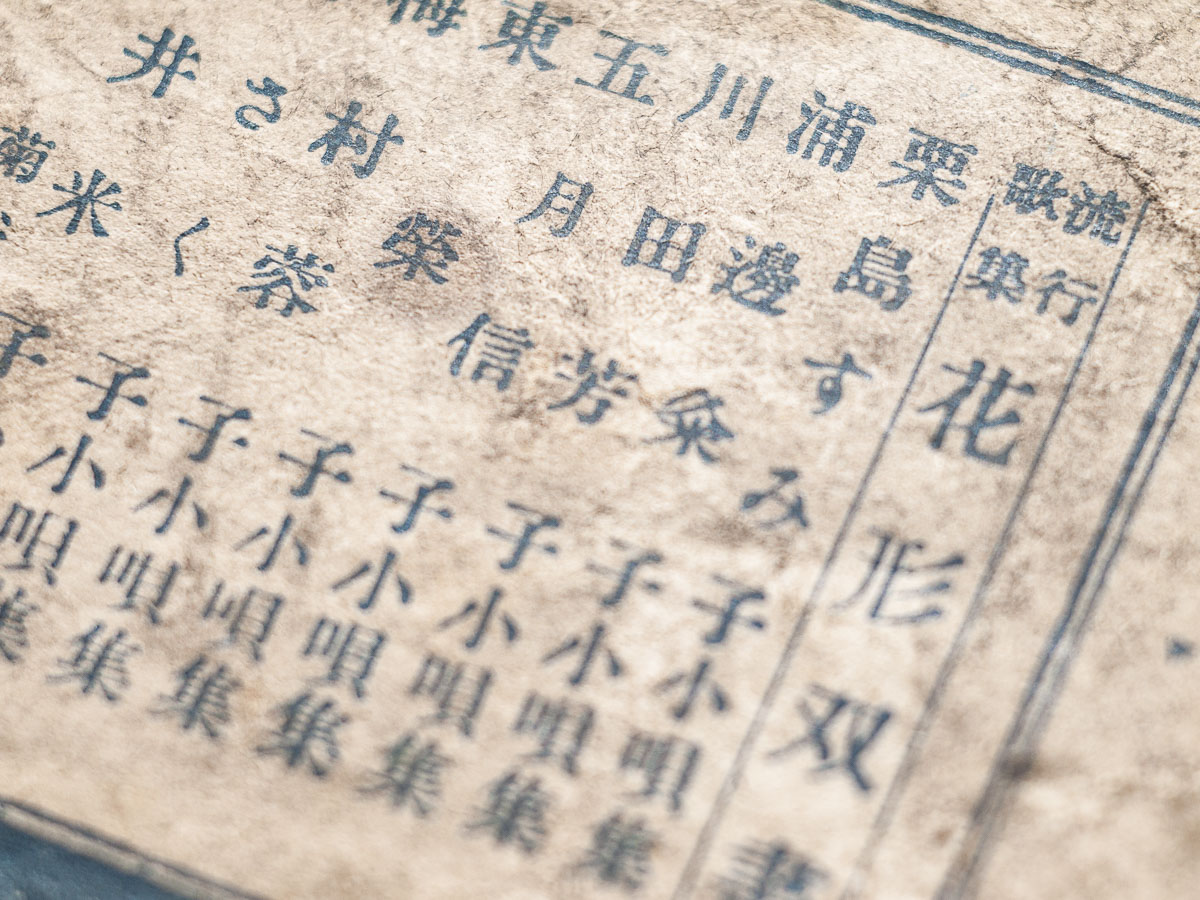 流行
歌集
花形双書
栗島すみ子小唄集
浦邊粂子小唄集
川田芳子小唄集
五月信子小唄集
東榮子小唄集
梅村蓉子小唄集
さく子小唄集
井米子
菊